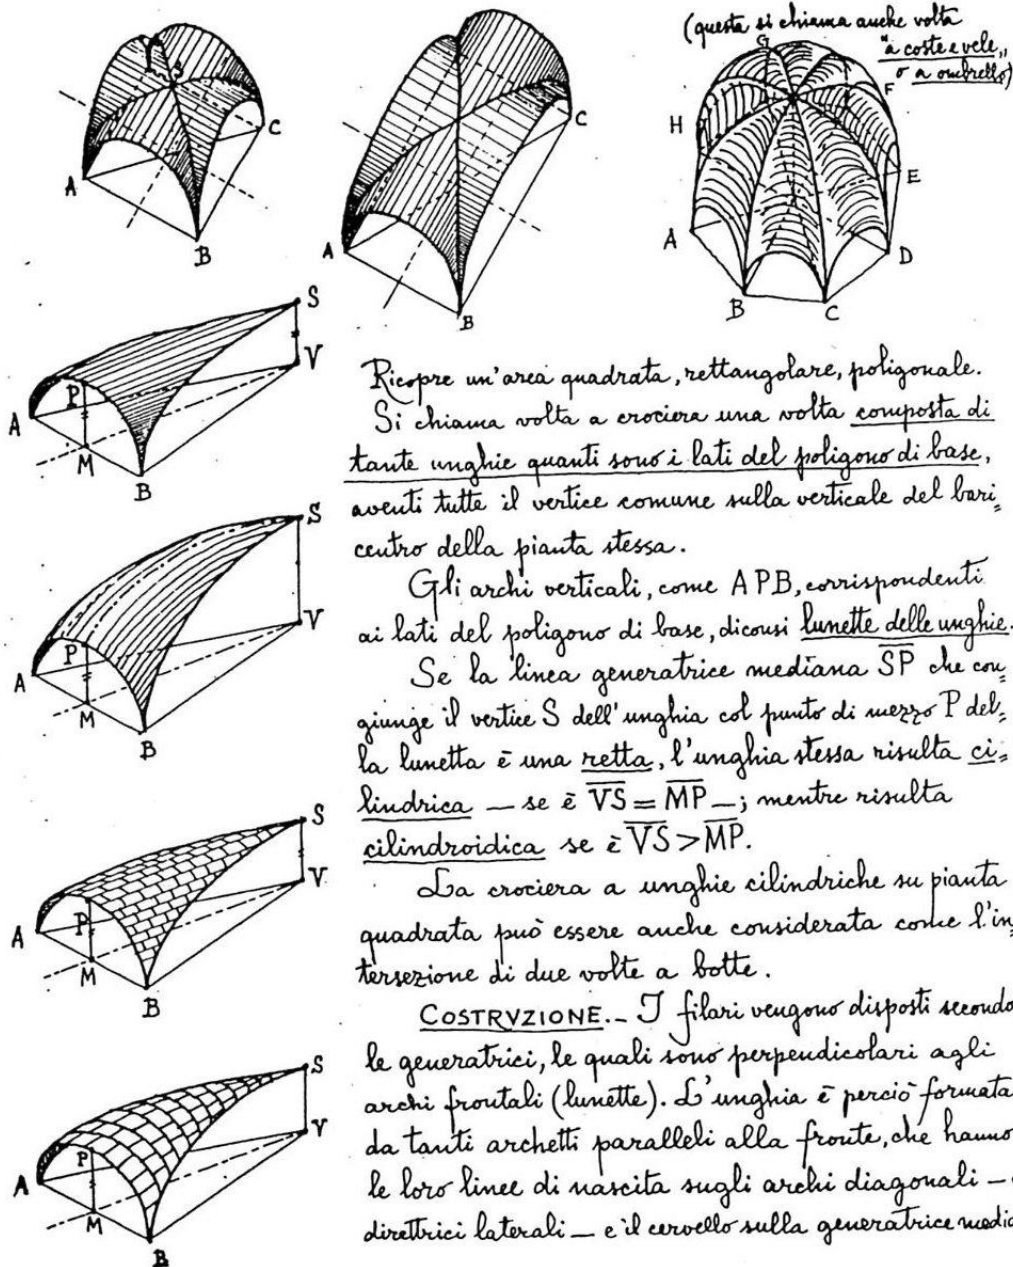 (questa si chiama anche volta
"a coste e vele„
o a ombrello)
S
C
A
B
C
A
B
G
F
H
E
A
D
B
C
S
V
P
A
M
B
S
V
P
A
M
B
S
V
P
A
M
B
S
V
P
A
M
B
Ricopre un'area quadrata, rettangolare, poligonale.
Si chiama volta a crociera una volta composta di
tante unghie quanti sono i lati del poligono di base,
aventi tutte il vertice comune sulla verticale del bari=
centro della pianta stessa.
Gli archi verticali, come APB, corrispondenti
ai lati del poligono di base, diconsi lunette delle unghie.
Se la linea generatrice mediana S̅P̅ che con=
giunge il vertice S dell'unghia col punto di mezzo P del=
la lunetta è una retta, l'unghia stessa risulta ci=
lindrica — se è V̅S̅ = M̅P̅ —; mentre risulta
cilindroidica se è V̅S̅ > M̅P̅.
La crociera a unghie cilindriche su pianta
quadrata può essere anche considerata come l'in=
tersezione di due volte a botte.
COSTRVZIONE._ I filari vengono disposti secondo
le generatrici, le quali sono perpendicolari agli
archi frontali (lunette). L'unghia è perciò formata
da tanti archetti paralleli alla fronte, che hanno
le loro linee di nascita sugli archi diagonali —
direttrici laterali — e il cervello sulla generatrice media